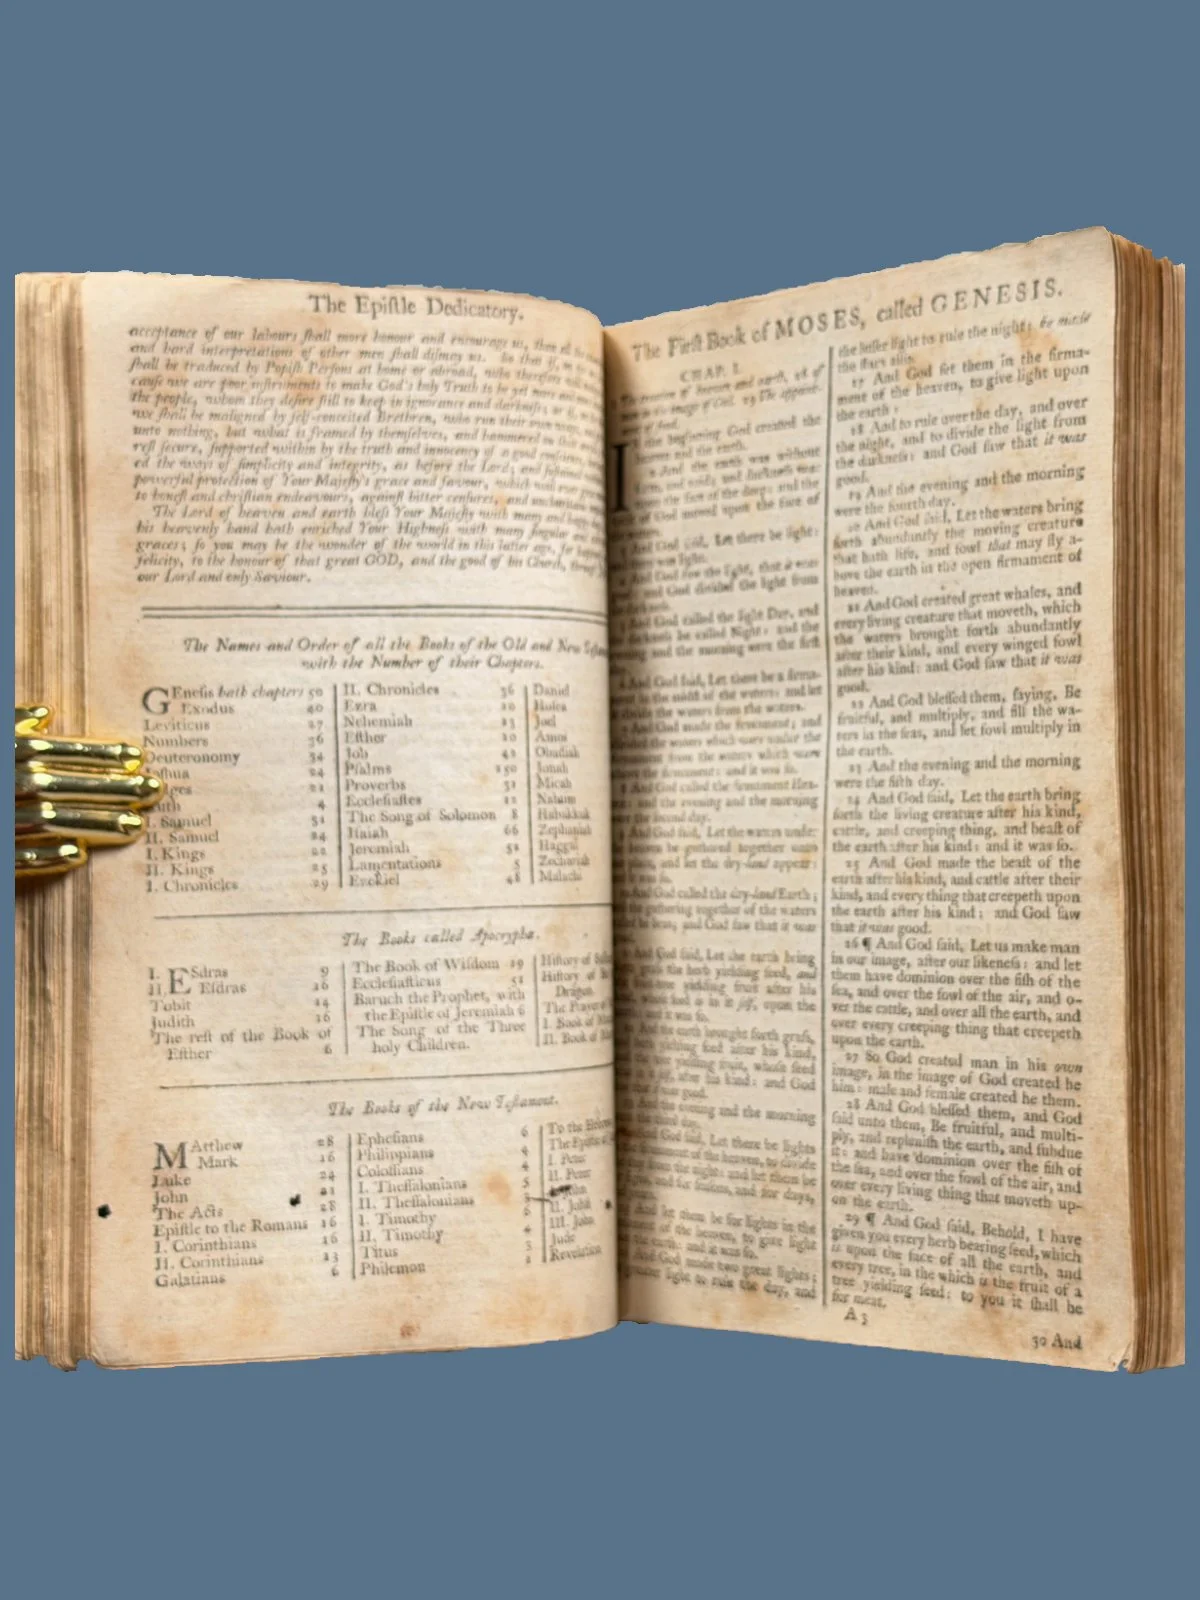 The Epiſtle Dedicatory.
acceptance of our labours ſhall more honour and encourage us, then all the
and hard interpretations of other men ſhall diſmay us. So that if, on the
ſhall be traduced by Popiſh Perſons at home or abroad, who therefore will
cauſe we are poor inſtruments to make God's holy Truth to be yet more and more
the people, whom they deſire ſtill to keep in ignorance and darkneſs; or if, on the
we ſhall be maligned by ſelf-conceited Brethren, who run their own ways, and
unto nothing, but what is framed by themſelves, and hammered on their
reſt ſecure, ſupported within by the truth and innocency of a good conſcience,
ed the ways of ſimplicity and integrity, as before the Lord; and ſuſtained
powerful protection of Your Majeſty's grace and favour, which will ever give
to honeſt and chriſtian endeavours, againſt bitter cenſures, and uncharitable
The Lord of heaven and earth bleſs Your Majeſty with many and happy days,
his heavenly hand hath enriched Your Highneſs with many ſingular and
graces; ſo you may be the wonder of the world in this latter age, for happineſs
felicity, to the honour of that great GOD, and the good of his Church, through
our Lord and only Saviour.
The Names and Order of all the Books of the Old and New
with the Number of their Chapters.
GEneſis hath chapters 50
Exodus 40
Leviticus 27
Numbers 36
Deuteronomy 34
Joſhua 24
ges 21
uth 4
I. Samuel 31
II. Samuel 24
I. Kings 22
II. Kings 25
I. Chronicles 29
II. Chronicles 36
Ezra 10
Nehemiah 13
Eſther 10
Job 42
Pſalms 150
Proverbs 31
Eccleſiaſtes 12
The Song of Solomon 8
Iſaiah 66
Jeremiah 52
Lamentations 5
Ezekiel 48
Daniel
Hoſea
Joel
Amos
Obadiah
Jonah
Micah
Nahum
Habakkuk
Zephaniah
Haggai
Zechariah
Malachi
The Books called Apocrypha.
I. ESdras 9
II. Eſdras 16
Tobit 14
Judith 16
The reſt of the Book of
Eſther 6
The Book of Wiſdom 19
Eccleſiaſticus 51
Baruch the Prophet, with
the Epiſtle of Jeremiah 6
The Song of the Three
holy Children.
Hiſtory of
Hiſtory of
Dragon.
The Prayer of
I. Book of
II. Book of
The Books of the New Teſtament.
MAtthew 28
Mark 16
Luke 24
John 21
The Acts 28
Epiſtle to the Romans 16
I. Corinthians 16
II. Corinthians 13
Galatians 6
Epheſians 6
Philippians 4
Coloſſians 4
I. Theſſalonians 5
II. Theſſalonians 3
I. Timothy 6
II. Timothy 4
Titus 3
Philemon 1
To the Hebrews
The Epiſtle of
I. Peter
II. Peter
I. John
II. John
III. John
Jude
Revelation
The Firſt Book of MOSES, called GENESIS.
CHAP. I.
The creation of heaven and earth, 26 of
man in the image of God. 29 The appoint-
of food.
IN the beginning God created the
heaven and the earth.
2 And the earth was without
form, and void; and darkneſs was
upon the face of the deep: and the
of God moved upon the face of
the waters.
3 And God ſaid, Let there be light:
there was light.
4 And God ſaw the light, that it was
good: and God divided the light from
the darkneſs.
5 And God called the light Day, and
the darkneſs he called Night: and the
evening and the morning were the firſt
6 And God ſaid, Let there be a firma-
ment in the midſt of the waters: and let
it divide the waters from the waters.
7 And God made the firmament; and
divided the waters which were under the
firmament from the waters which were
above the firmament: and it was ſo.
8 And God called the firmament Hea-
ven: and the evening and the morning
were the ſecond day.
9 And God ſaid, Let the waters under
the heaven be gathered together unto
one place, and let the dry-land appear:
and it was ſo.
10 And God called the dry-land Earth;
the gathering together of the waters
called he ſeas, and God ſaw that it was
11 And God ſaid, Let the earth bring
forth graſs, the herb yielding ſeed, and
the fruit-tree yielding fruit after his
kind, whoſe ſeed is in it ſelf, upon the
earth: and it was ſo.
12 And the earth brought forth graſs,
and herb yielding ſeed after his kind,
and the tree yielding fruit, whoſe ſeed
was in it ſelf, after his kind: and God
ſaw that it was good.
13 And the evening and the morning
were the third day.
14 And God ſaid, Let there be lights
in the firmament of the heaven, to divide
the day from the night: and let them be
for ſigns, and for ſeaſons, and for days,
and years.
15 And let them be for lights in the
firmament of the heaven, to give light
upon the earth: and it was ſo.
16 And God made two great lights;
the greater light to rule the day, and
the leſſer light to rule the night: he made
the ſtars alſo.
17 And God ſet them in the firma-
ment of the heaven, to give light upon
the earth:
18 And to rule over the day, and over
the night, and to divide the light from
the darkneſs: and God ſaw that it was
good.
19 And the evening and the morning
were the fourth day.
20 And God ſaid, Let the waters bring
forth abundantly the moving creature
that hath life, and fowl that may fly a-
bove the earth in the open firmament of
heaven.
21 And God created great whales, and
every living creature that moveth, which
the waters brought forth abundantly
after their kind, and every winged fowl
after his kind: and God ſaw that it was
good.
22 And God bleſſed them, ſaying, Be
fruitful, and multiply, and fill the wa-
ters in the ſeas, and let fowl multiply in
the earth.
23 And the evening and the morning
were the fifth day.
24 And God ſaid, Let the earth bring
forth the living creature after his kind,
cattle, and creeping thing, and beaſt of
the earth after his kind: and it was ſo.
25 And God made the beaſt of the
earth after his kind, and cattle after their
kind, and every thing that creepeth upon
the earth after his kind: and God ſaw
that it was good.
26 ¶ And God ſaid, Let us make man
in our image, after our likeneſs: and let
them have dominion over the fiſh of the
ſea, and over the fowl of the air, and o-
ver the cattle, and over all the earth, and
over every creeping thing that creepeth
upon the earth.
27 So God created man in his own
image, in the image of God created he
him: male and female created he them.
28 And God bleſſed them, and God
ſaid unto them, Be fruitful, and multi-
ply, and repleniſh the earth, and ſubdue
it: and have dominion over the fiſh of
the ſea, and over the fowl of the air, and
over every living thing that moveth up-
on the earth.
29 ¶ And God ſaid, Behold, I have
given you every herb bearing ſeed, which
is upon the face of all the earth, and
every tree, in the which is the fruit of a
tree yielding ſeed: to you it ſhall be
for meat.
A 3
30 And